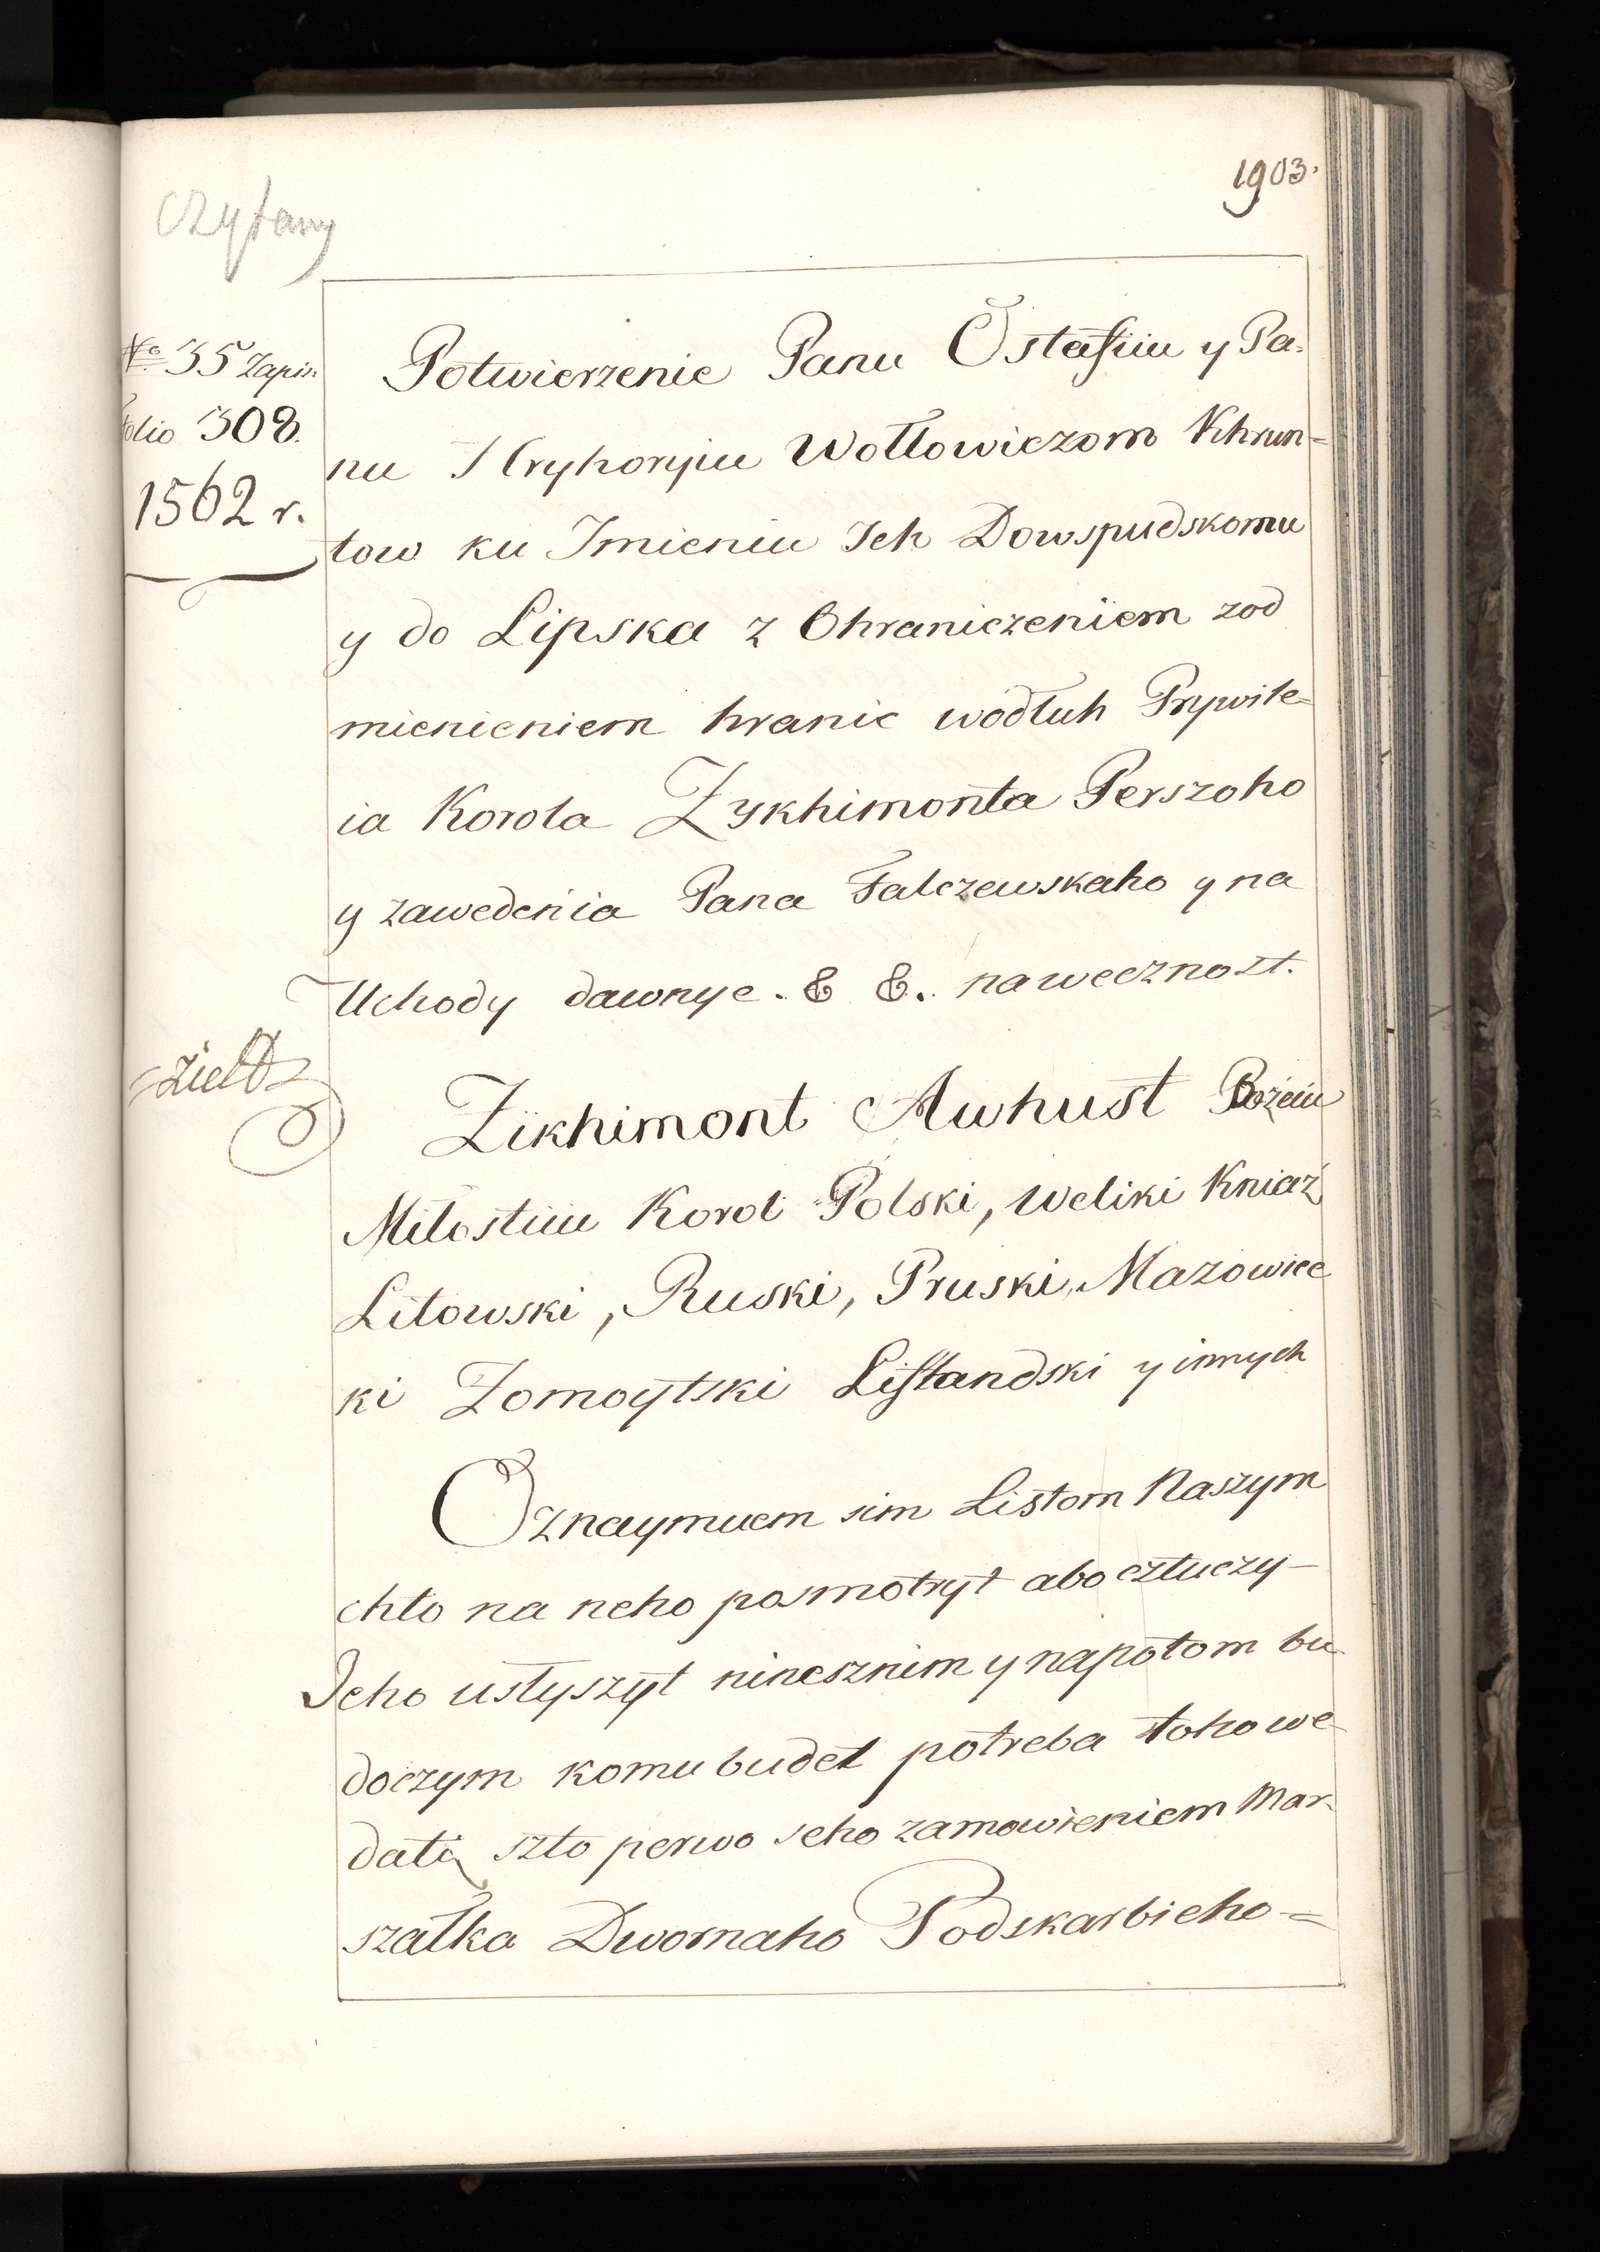 1903.
czytany
No 35 Zapis:
folio 308.
1562 r.
Potwierzenie Panu Ostafiiu y Pa=
nu Hryhoryiu Wołłowiczom Khrun=
tow ku Imieniu Ich Dowspudskomu
y do Lipska z Ohraniczeniem zod
mienieniem hranic wodłuh Prywile=
ia Korola Zykhimonta Perszoho
y zawedenia Pana Falczewskaho y na
Uchody dawnye. & &. na wecznost.
Zikhimont Awhust Bożeiu
Miłostiiu Korol Polski, Weliki Kniaź
Litowski, Ruski, Pruski, Mazowiec
ki Żomoytski Liflandski y innych
Oznaymuem sim Listom Naszym
chto na neho posmotryt abo cztuczy
Jeho usłyszyt ninesznim y napotom bu
doczym komu budet potreba toho we
dati, szto perwo seho zamowieniem Mar=
szałka Dwornaho Podskarbieho =